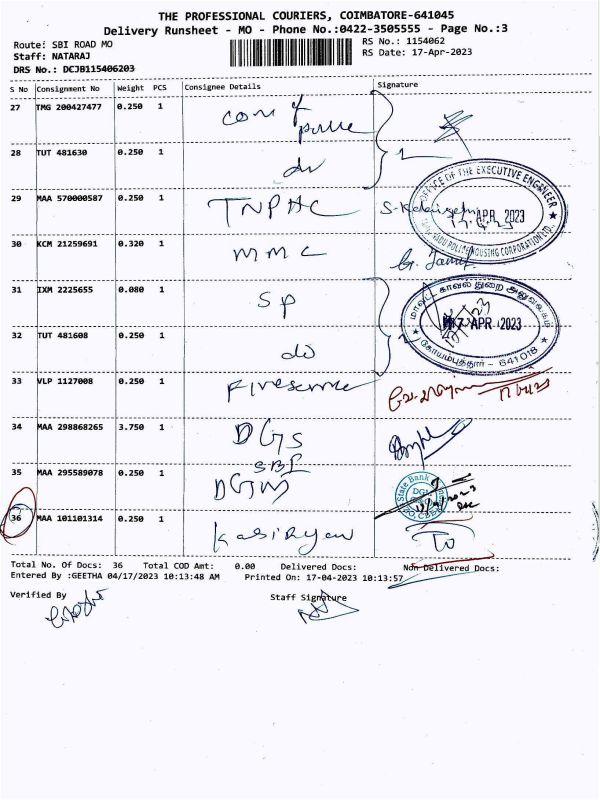 THE PROFESSIONAL COURIERS, COIMBATORE-641045
Delivery Runsheet - MO - Phone No.:0422-3505555 - Page No.:3
Route: SBI ROAD MO
RS No.: 1154062
Staff: NATARAJ
RS Date: 17-Apr-2023
DRS No.: DCJB115406203
S No Consignment No Weight PCS Consignee Details Signature
27 TMG 200427477 0.250 1 com of
police
28 TUT 481630 0.250 1 do
29 MAA 570000587 0.250 1 TNPHC
OFFICE OF THE EXECUTIVE ENGINEER
APR 2023
POLICE HOUSING CORPORATION LTD.
30 KCM 21259691 0.320 1 MMC
31 IXM 2225655 0.080 1 SP
மாவட்ட காவல் துறை அலுவலகம்
17 APR 2023
கோயம்புத்தூர் - 641018
32 TUT 481608 0.250 1 do
33 VLP 1127008 0.250 1
34 MAA 298868265 3.750 1 DGS
SBI
35 MAA 295589078 0.250 1
State Bank
36 MAA 101101314 0.250 1
Total No. Of Docs: 36 Total COD Amt: 0.00 Delivered Docs: Non Delivered Docs:
Entered By :GEETHA 04/17/2023 10:13:48 AM Printed On: 17-04-2023 10:13:57
Verified By Staff Signature